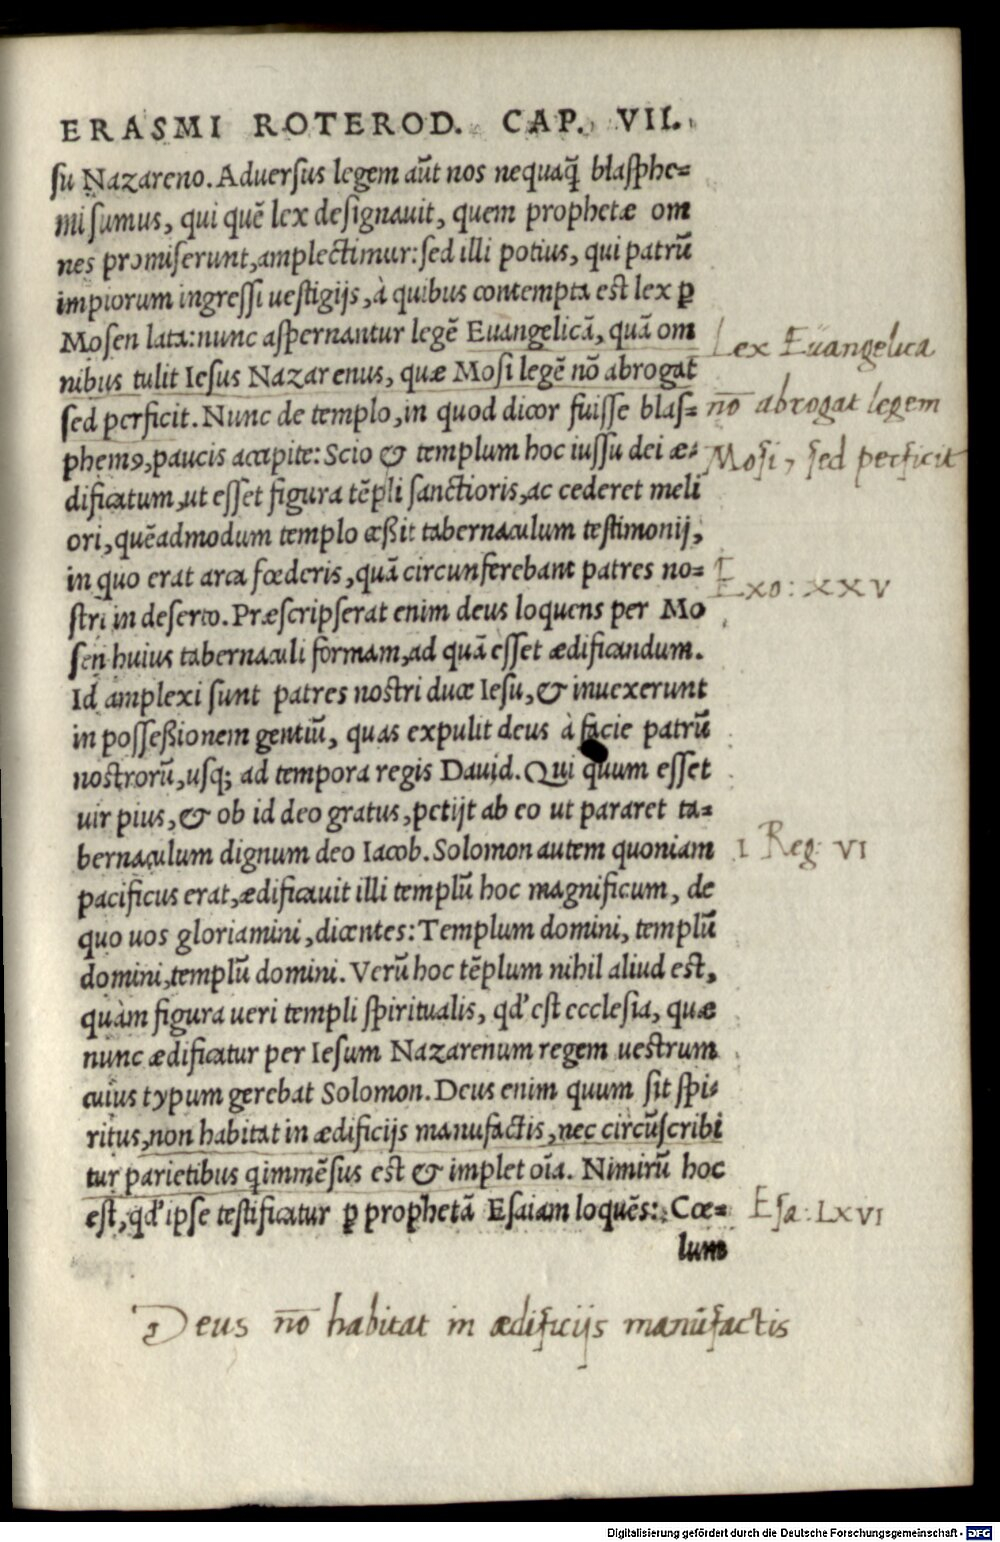 ERASMI ROTEROD. CAP. VII.
ſu Nazareno. Aduerſus legem aūt nos nequaq̄ blaſphe=
mi ſumus, qui quē lex deſignauit, quem prophetæ om
nes promiſerunt, amplectimur: ſed illi potius, qui patrū
impiorum ingreſſi ueſtigijs, à quibus contempta eſt lex ꝑ
Moſen lata: nunc aſpernantur legē Euangelicā, quā om
nibus tulit Ieſus Nazarenus, quæ Moſi legē nō abrogat
ſed perficit. Nunc de templo, in quod dicor fuiſſe blaſ=
phemꝰ, paucis accipite: Scio & templum hoc iuſſu dei æ=
dificatum, ut eſſet figura tēpli ſanctioris, ac cederet meli
ori, quēadmodum templo ceßit tabernaculum teſtimonij,
in quo erat arca fœderis, quā circunferebant patres no=
ſtri in deſerto. Præſcripſerat enim deus loquens per Mo
ſen huius tabernaculi formam, ad quā eſſet ædificandum.
Id amplexi ſunt patres noſtri duce Ieſu, & inuexerunt
in poſſeßionem gentiū, quas expulit deus à facie patrū
noſtrorū, uſq; ad tempora regis Dauid. Qui quum eſſet
uir pius, & ob id deo gratus, petijt ab eo ut pararet ta=
bernaculum dignum deo Iacob. Solomon autem quoniam
pacificus erat, ædificauit illi templū hoc magnificum, de
quo uos gloriamini, dicentes: Templum domini, templū
domini, templū domini. Verū hoc tēplum nihil aliud eſt,
quàm figura ueri templi ſpiritualis, qd' eſt eccleſia, quæ
nunc ædificatur per Ieſum Nazarenum regem ueſtrum
cuius typum gerebat Solomon. Deus enim quum ſit ſpi=
ritus, non habitat in ædificijs manufactis, nec circūſcribi
tur parietibus q immēſus eſt & implet oīa. Nimirū hoc
eſt, qd' ipſe teſtificatur ꝑ prophetā Eſaiam loquēs: Cœ=
lum
Lex Euangelica
nō abrogat legem
Moſi, ſed perficit
Exo: XXV
I Reg: VI
Eſa: LXVI
Deus nō habitat in ædificijs manufactis
Digitalisierung gefördert durch die Deutsche Forschungsgemeinschaft - DFG